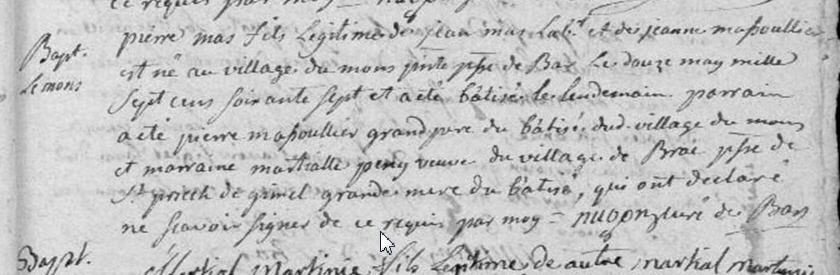 ce requis par moy
pierre mas fils Legitime de jean mas Labr et de jeanne massoullier
Bapt. est né au village du mons prnte psse de Bar Le douze may mille
Le mons sept cens soixante sept et a eté bâtisé le lendemain parrain
a eté pierre massoullier grand pere du bâtisé dud. village du mons
et marraine martialle peny veuve du village de Brac psse de
St priech de gimel grande mere du bâtisé, qui ont declaré
ne scavoir signer de ce requis par moy = curé de Bar
Bappt. Martial Martinie fils Legitime de autre martial martinie